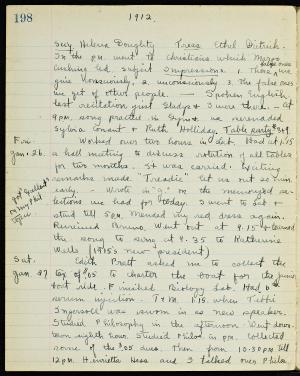 198
1912.
Secy Helena Doughty Treas Ethel Dietrich.
In the p.m. went to Christians which Margo
led. subject Impressions 1. Those false ones we
give consciously, 2. unconsciously 3. The false ones
we get of other people. — Spoken English
last recitation just Gladys & I were there. — at
9 p.m. song practice in Gym & we serenaded
Sylvia Conant & Ruth Holliday. Table party
Fri.
Jan. 26.
Worked over two hours in Lab. Had at 1.15
a hall meeting to discuss rotation of all tables
for two months. It was carried. Writing
remarks made "Treadie" let us out
early. - Wrote in "g." on the memorized
lections we had for today. I went to Lab &
stud till 5 p.m. Mended my red dress again.
Reviewed Bruno. Went out at 9.15 to
the song to sing at 9.35 to Katharine
Wells (1915's new president)
Sat.
Jan 27
Edith Pratt asked me to collect the
tax of $.05 to charter the boat for the junior
boat ride. Finished Biology Lab. Had 6th
serum injection. 7 & M 1.15 when Tibbi
Ingersoll was sworn in as new speaker.
Studied Philosophy in the afternoon. Went down
town eighth hour. Studied Philos. in p.m. collected
some of the $.05 dues. Then from 10:30 P.M. till
12 P.M. Henrietta Hess and I talked over Philos.